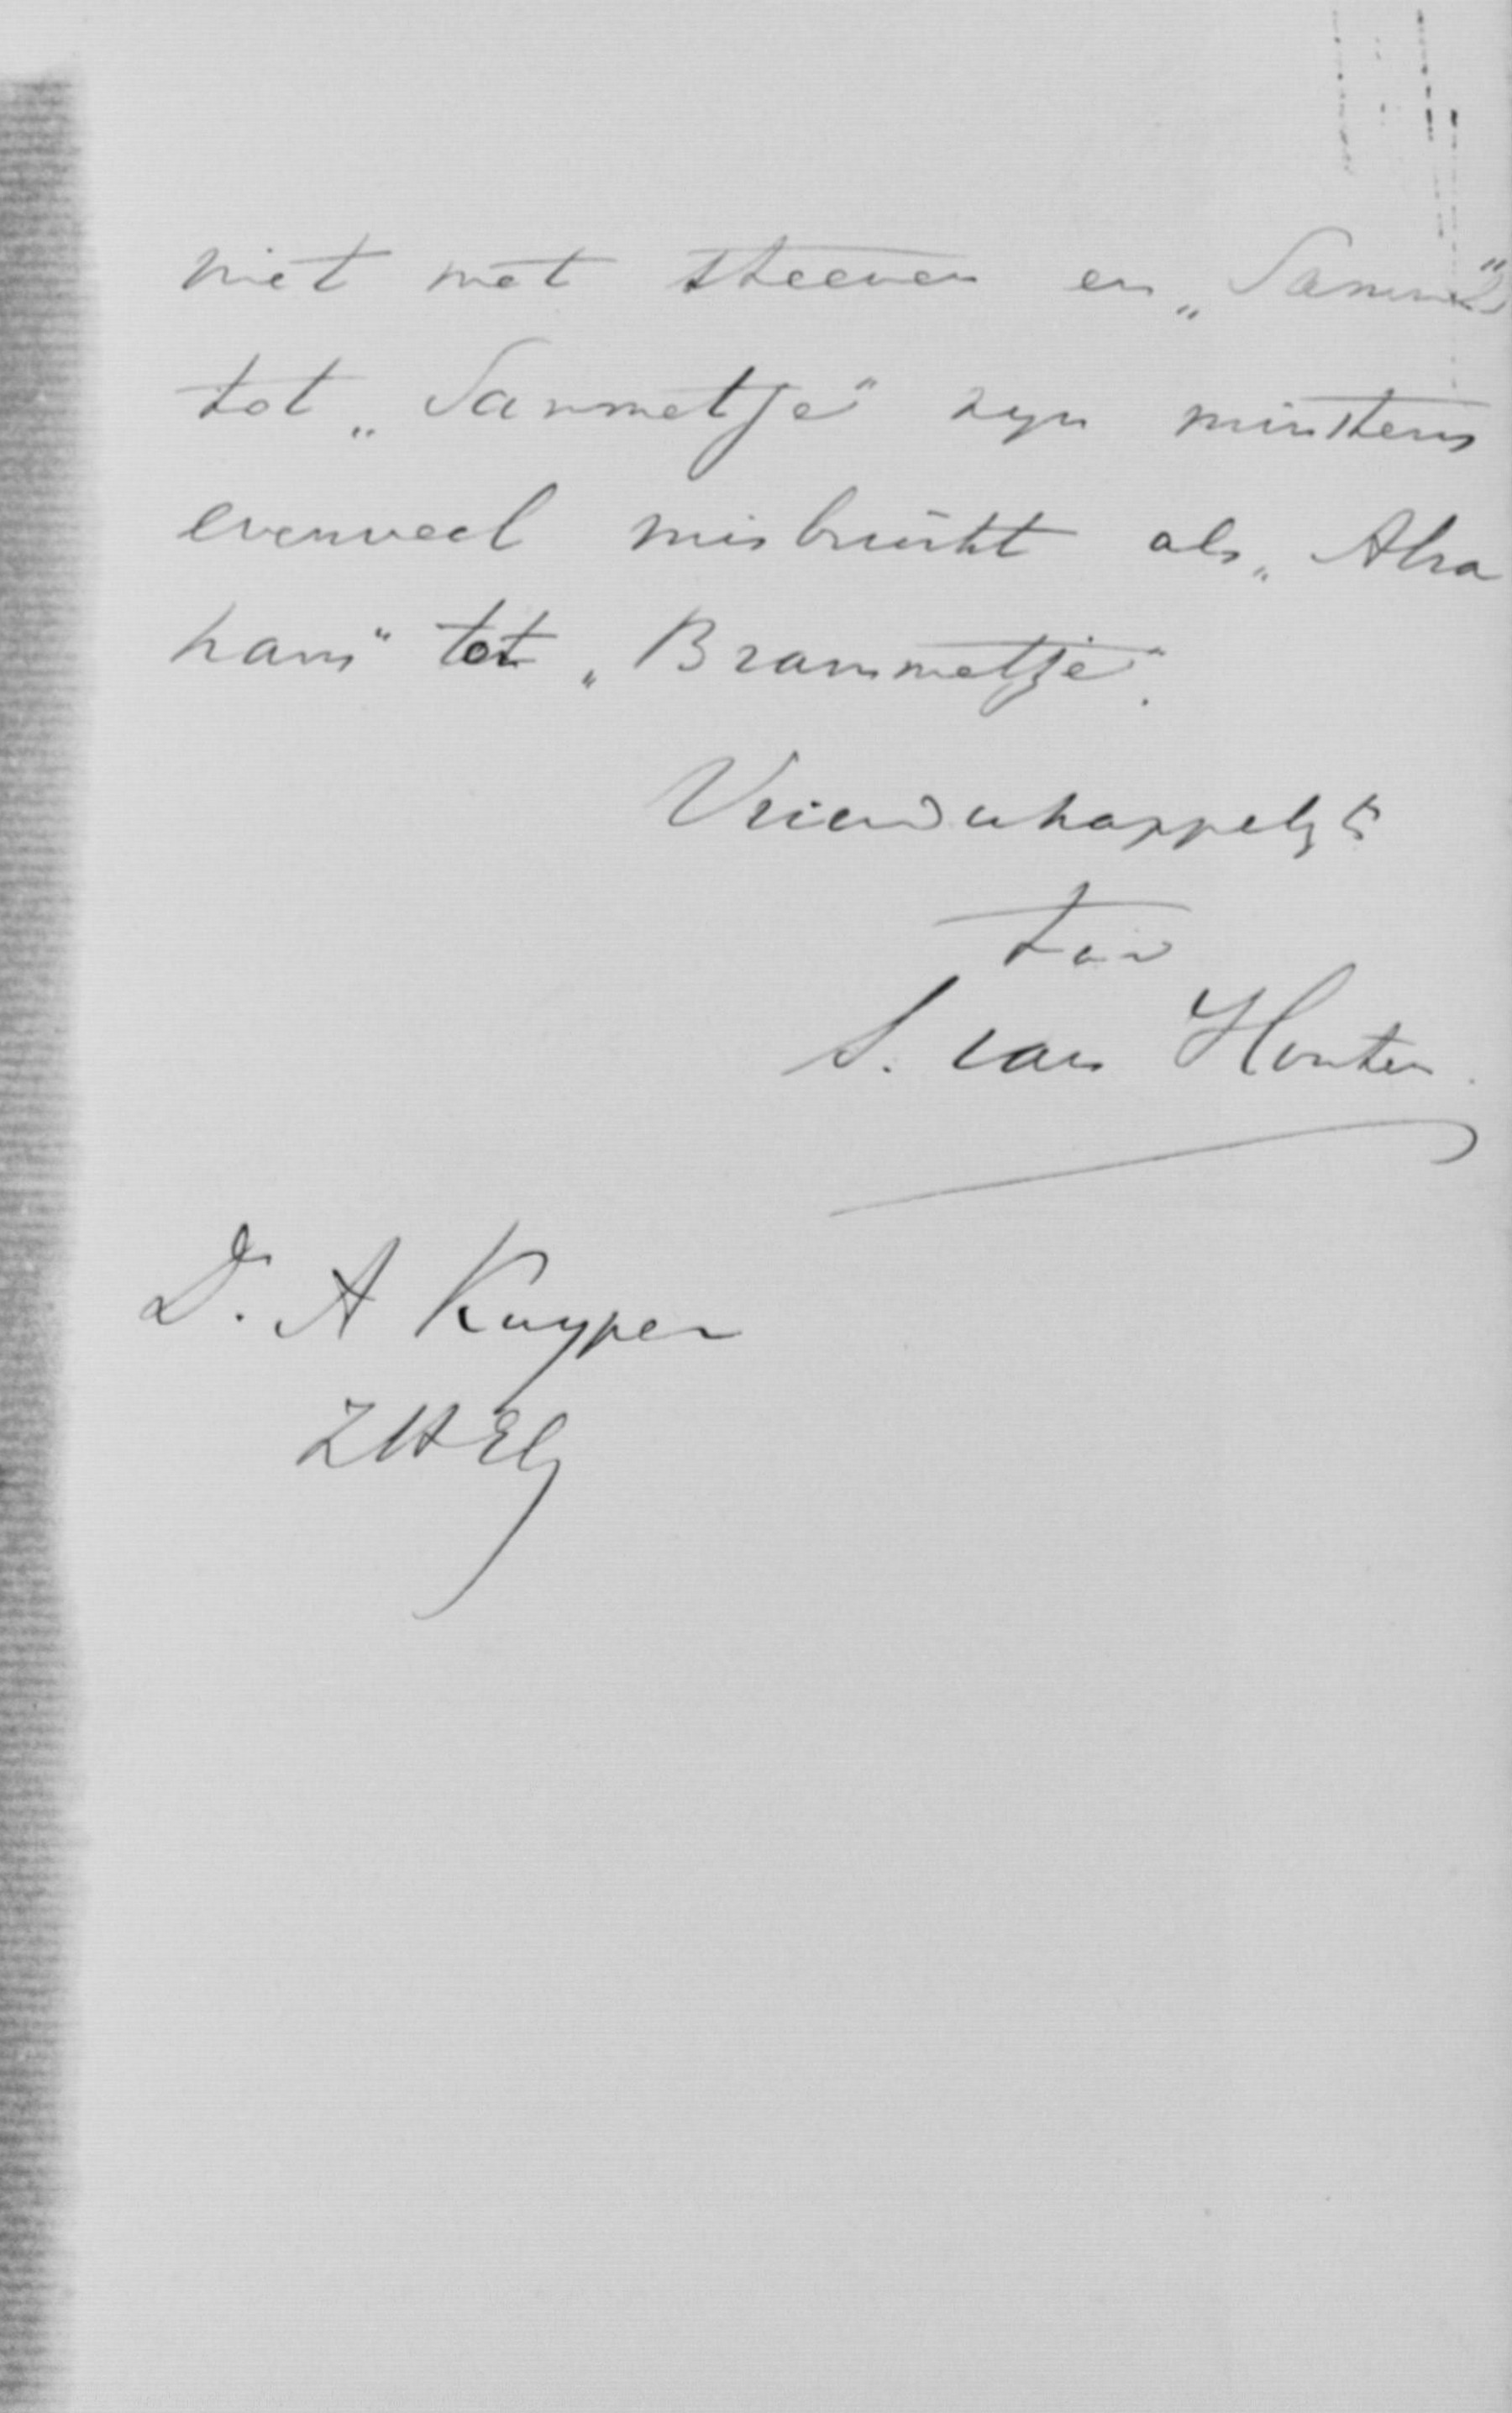 niet met steenen en „Sammel"
tot „Sammetje" zyn minstens
evenveel misbruikt als „Abra
ham" tot „Brammetje".
Vriendschappelijk
t.à.v
S. van Houten
Dr. A Kuyper
ZHEG